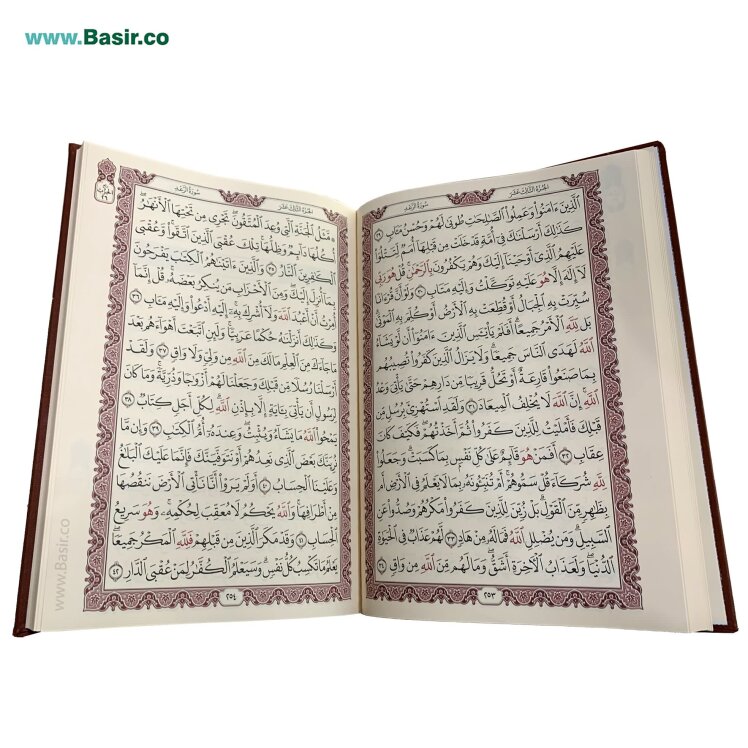 www.Basir.co
الجزء الثالث عشر
سورة الرعد
الَّذِينَ ءَامَنُوا وَعَمِلُوا الصَّالِحَاتِ طُوبَىٰ لَهُمْ وَحُسْنُ مَآبٍ ٢٩
كَذَٰلِكَ أَرْسَلْنَاكَ فِي أُمَّةٍ قَدْ خَلَتْ مِن قَبْلِهَا أُمَمٌ لِّتَتْلُوَا
عَلَيْهِمُ الَّذِي أَوْحَيْنَا إِلَيْكَ وَهُمْ يَكْفُرُونَ بِالرَّحْمَٰنِ قُلْ هُوَ رَبِّي
لَا إِلَٰهَ إِلَّا هُوَ عَلَيْهِ تَوَكَّلْتُ وَإِلَيْهِ مَتَابِ ٣٠ وَلَوْ أَنَّ قُرْءَانًا
سُيِّرَتْ بِهِ الْجِبَالُ أَوْ قُطِّعَتْ بِهِ الْأَرْضُ أَوْ كُلِّمَ بِهِ الْمَوْتَىٰ
بَل لِّلَّهِ الْأَمْرُ جَمِيعًا أَفَلَمْ يَاْيْـَٔسِ الَّذِينَ ءَامَنُوا أَن لَّوْ يَشَاءُ
اللَّهُ لَهَدَى النَّاسَ جَمِيعًا وَلَا يَزَالُ الَّذِينَ كَفَرُوا تُصِيبُهُم
بِمَا صَنَعُوا قَارِعَةٌ أَوْ تَحُلُّ قَرِيبًا مِّن دَارِهِمْ حَتَّىٰ يَأْتِيَ وَعْدُ
اللَّهِ إِنَّ اللَّهَ لَا يُخْلِفُ الْمِيعَادَ ٣١ وَلَقَدِ اسْتُهْزِئَ بِرُسُلٍ مِّن
قَبْلِكَ فَأَمْلَيْتُ لِلَّذِينَ كَفَرُوا ثُمَّ أَخَذْتُهُمْ فَكَيْفَ كَانَ
عِقَابِ ٣٢ أَفَمَنْ هُوَ قَائِمٌ عَلَىٰ كُلِّ نَفْسٍ بِمَا كَسَبَتْ وَجَعَلُوا
لِلَّهِ شُرَكَاءَ قُلْ سَمُّوهُمْ أَمْ تُنَبِّـُٔونَهُ بِمَا لَا يَعْلَمُ فِي الْأَرْضِ أَم
بِظَاهِرٍ مِّنَ الْقَوْلِ بَلْ زُيِّنَ لِلَّذِينَ كَفَرُوا مَكْرُهُمْ وَصُدُّوا عَنِ
السَّبِيلِ وَمَن يُضْلِلِ اللَّهُ فَمَا لَهُ مِنْ هَادٍ ٣٣ لَّهُمْ عَذَابٌ فِي الْحَيَوٰةِ
الدُّنْيَا وَلَعَذَابُ الْآخِرَةِ أَشَقُّ وَمَا لَهُم مِّنَ اللَّهِ مِن وَاقٍ ٣٤
٢٥٣
الجزء الثالث عشر
سورة الرعد
مَّثَلُ الْجَنَّةِ الَّتِي وُعِدَ الْمُتَّقُونَ تَجْرِي مِن تَحْتِهَا الْأَنْهَارُ
أُكُلُهَا دَائِمٌ وَظِلُّهَا تِلْكَ عُقْبَى الَّذِينَ اتَّقَوا وَّعُقْبَى
الْكَافِرِينَ النَّارُ ٣٥ وَالَّذِينَ ءَاتَيْنَاهُمُ الْكِتَابَ يَفْرَحُونَ
بِمَا أُنزِلَ إِلَيْكَ وَمِنَ الْأَحْزَابِ مَن يُنكِرُ بَعْضَهُ قُلْ إِنَّمَا
أُمِرْتُ أَنْ أَعْبُدَ اللَّهَ وَلَا أُشْرِكَ بِهِ إِلَيْهِ أَدْعُو وَإِلَيْهِ مَآبِ ٣٦
وَكَذَٰلِكَ أَنزَلْنَاهُ حُكْمًا عَرَبِيًّا وَلَئِنِ اتَّبَعْتَ أَهْوَاءَهُم بَعْدَ
مَا جَاءَكَ مِنَ الْعِلْمِ مَا لَكَ مِنَ اللَّهِ مِن وَلِيٍّ وَلَا وَاقٍ ٣٧ وَلَقَدْ
أَرْسَلْنَا رُسُلًا مِّن قَبْلِكَ وَجَعَلْنَا لَهُمْ أَزْوَاجًا وَذُرِّيَّةً وَمَا كَانَ
لِرَسُولٍ أَن يَأْتِيَ بِـَٔايَةٍ إِلَّا بِإِذْنِ اللَّهِ لِكُلِّ أَجَلٍ كِتَابٌ ٣٨
يَمْحُوا اللَّهُ مَا يَشَاءُ وَيُثْبِتُ وَعِندَهُ أُمُّ الْكِتَابِ ٣٩ وَإِن مَّا
نُرِيَنَّكَ بَعْضَ الَّذِي نَعِدُهُمْ أَوْ نَتَوَفَّيَنَّكَ فَإِنَّمَا عَلَيْكَ الْبَلَاغُ
وَعَلَيْنَا الْحِسَابُ ٤٠ أَوَلَمْ يَرَوْا أَنَّا نَأْتِي الْأَرْضَ نَنقُصُهَا
مِنْ أَطْرَافِهَا وَاللَّهُ يَحْكُمُ لَا مُعَقِّبَ لِحُكْمِهِ وَهُوَ سَرِيعُ
الْحِسَابِ ٤١ وَقَدْ مَكَرَ الَّذِينَ مِن قَبْلِهِمْ فَلِلَّهِ الْمَكْرُ جَمِيعًا
يَعْلَمُ مَا تَكْسِبُ كُلُّ نَفْسٍ وَسَيَعْلَمُ الْكُفَّارُ لِمَنْ عُقْبَى الدَّارِ ٤٢
٢٥٤
www.Basir.co